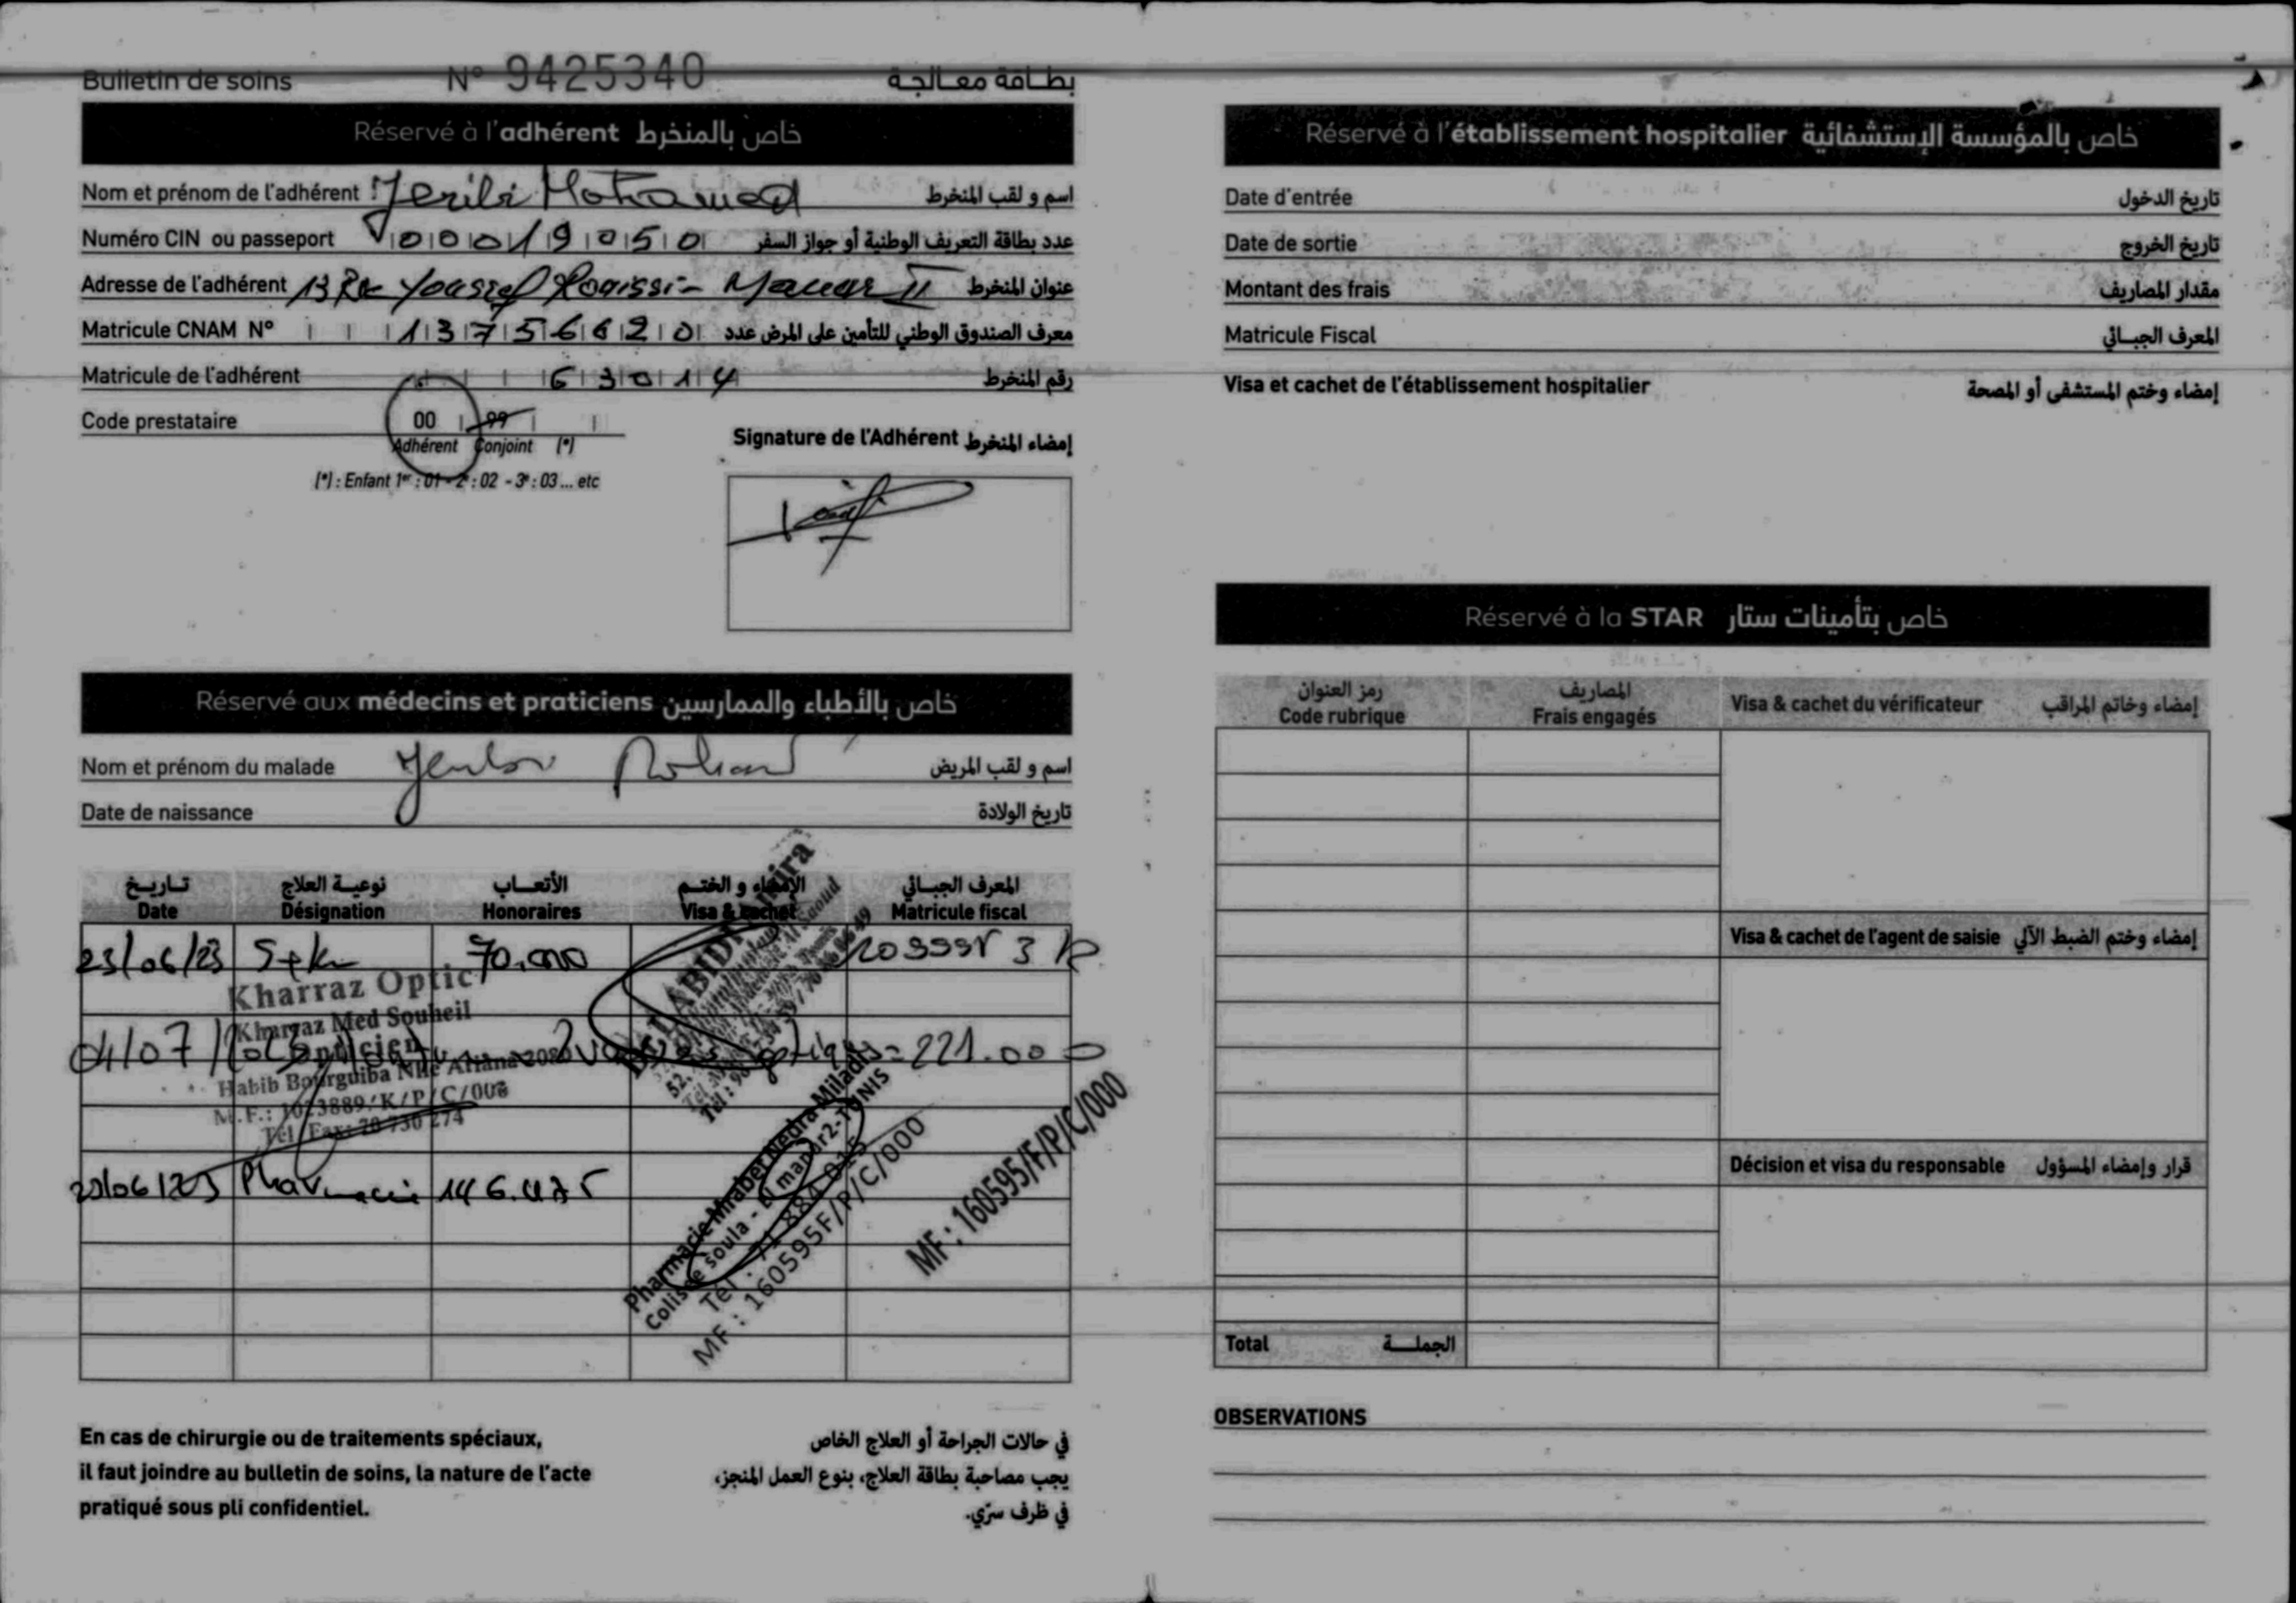 Bulletin de soins N° 9425340 بطـاقة معـالجـة
Réservé à l'adhérent خاص بالمنخرط
Nom et prénom de l'adhérent Jeribi Mohamed اسم و لقب المنخرط
Numéro CIN ou passeport 00019050 عدد بطاقة التعريف الوطنية أو جواز السفر
Adresse de l'adhérent 13 Rue Youssef Rouissi - Manar II عنوان المنخرط
Matricule CNAM N° 13756620 معرف الصندوق الوطني للتأمين على المرض عدد
Matricule de l'adhérent 63014 رقم المنخرط
Code prestataire 00 99
Adhérent Conjoint (*)
(*) : Enfant 1er : 01 - 2e : 02 - 3e : 03 ... etc
Signature de l'Adhérent إمضاء المنخرط
Réservé aux médecins et praticiens خاص بالأطباء والممارسين
Nom et prénom du malade Jeribi Mohamed اسم و لقب المريض
Date de naissance تاريخ الولادة
تـاريـخ نوعيـة العلاج الأتعـاب الإمضاء و الختـم المعرف الجبـائي
Date Désignation Honoraires Visa & cachet Matricule fiscal
23/06/23 70.000
Kharraz Optic
Kharraz Med Souheil
Opticien
04/07 optiques = 221.000
Habib Bourguiba Nlle Ariana 2080
M.F.: 1023889/K/P/C/000
Tél. Fax: 70 730 274
23/06/23 Pharmacie 146.475
Pharmacie Mrabet Nedra Miladi
Colisée soula - El manar2-TUNIS
Tél : 71 884 015
MF : 160595F/P/C/000
MF : 160595/F/P/C/000
En cas de chirurgie ou de traitements spéciaux,
il faut joindre au bulletin de soins, la nature de l'acte
pratiqué sous pli confidentiel.
في حالات الجراحة أو العلاج الخاص
يجب مصاحبة بطاقة العلاج، بنوع العمل المنجز،
في ظرف سرّي.
Réservé à l'établissement hospitalier خاص بالمؤسسة الإستشفائية
Date d'entrée تاريخ الدخول
Date de sortie تاريخ الخروج
Montant des frais مقدار المصاريف
Matricule Fiscal المعرف الجبـائي
Visa et cachet de l'établissement hospitalier إمضاء وختم المستشفى أو المصحة
Réservé à la STAR خاص بتأمينات ستار
رمز العنوان المصاريف
Code rubrique Frais engagés
Visa & cachet du vérificateur إمضاء وخاتم المراقب
Visa & cachet de l'agent de saisie إمضاء وختم الضبط الآلي
Décision et visa du responsable قرار وإمضاء المسؤول
Total الجملـــة
OBSERVATIONS